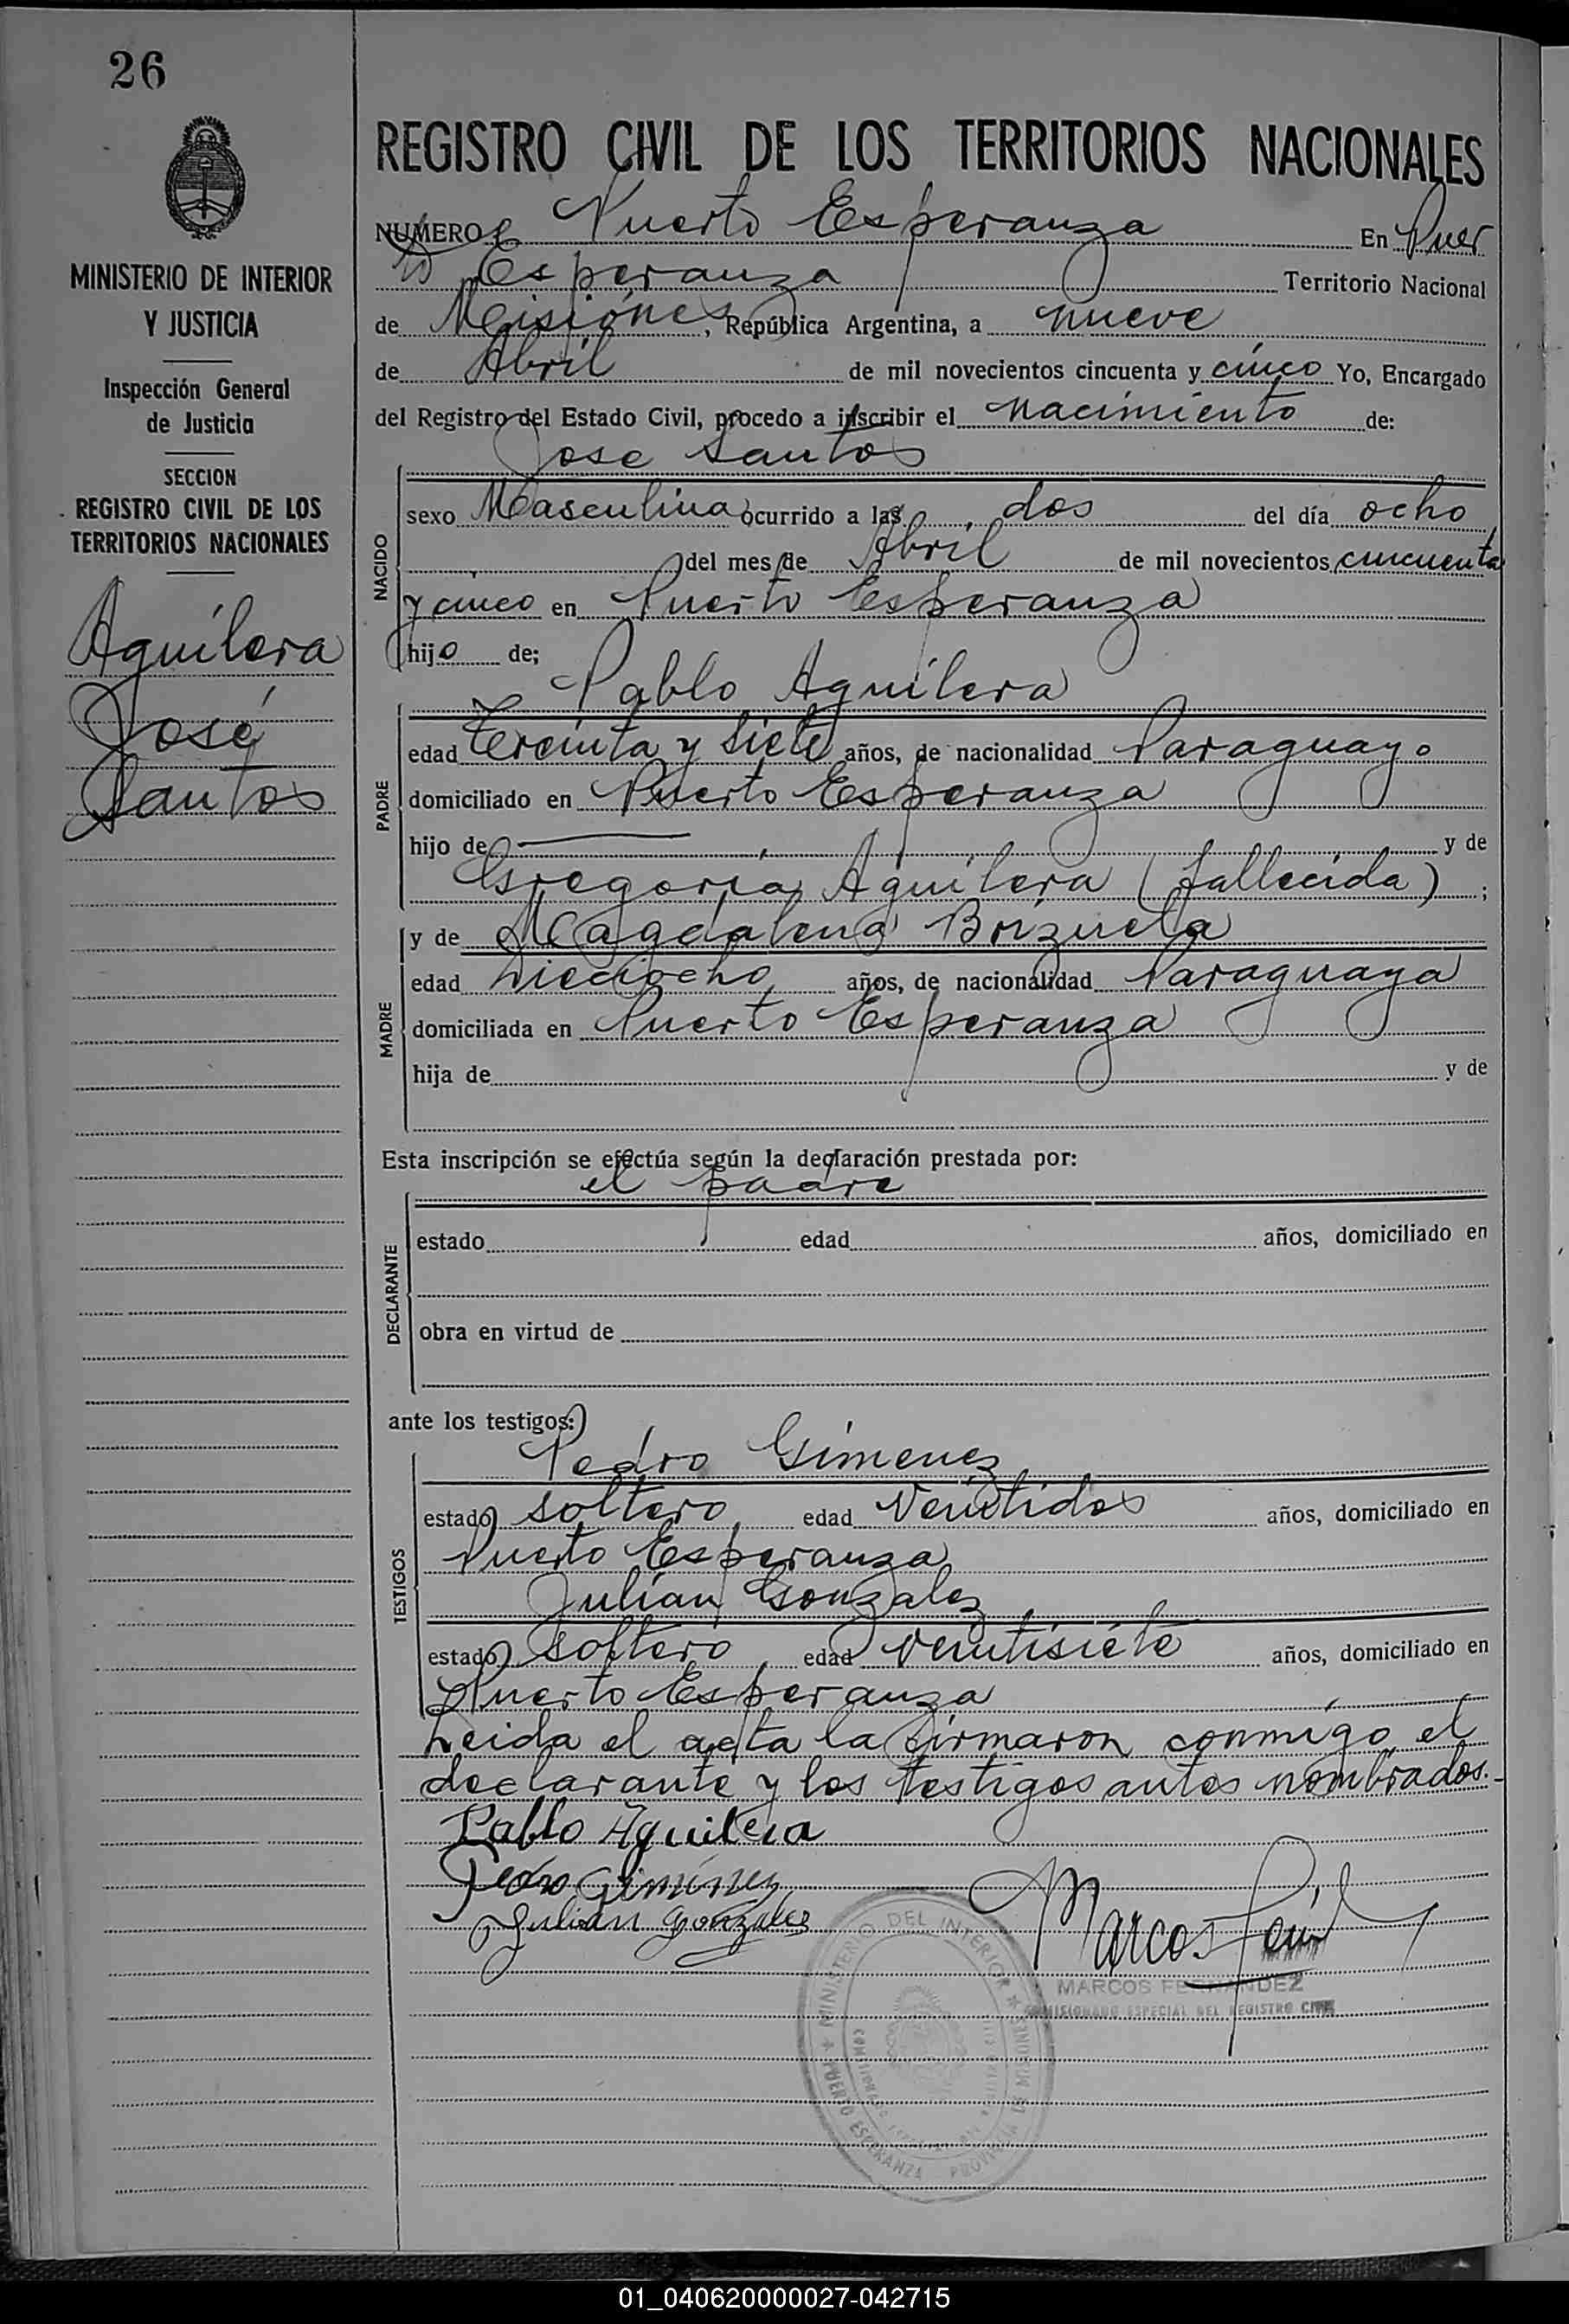 26
MINISTERIO DE INTERIOR
Y JUSTICIA
Inspección General
de Justicia
SECCION
REGISTRO CIVIL DE LOS
TERRITORIOS NACIONALES
Aguilera
José
Santos
REGISTRO CIVIL DE LOS TERRITORIOS NACIONALES
NUMERO Puerto Esperanza En Puer
to Esperanza Territorio Nacional
de Misiones, República Argentina, a nueve
de Abril de mil novecientos cincuenta y cinco Yo, Encargado
del Registro del Estado Civil, procedo a inscribir el nacimiento de:
Jose Santos
NACIDO
sexo Masculina ocurrido a las dos del día ocho
del mes de Abril de mil novecientos cincuenta
y cinco en Puerto Esperanza
hijo de;
Pablo Aguilera
PADRE
edad Treinta y siete años, de nacionalidad Paraguayo
domiciliado en Puerto Esperanza
hijo de y de
Gregoria Aguilera (fallecida) ;
y de Magdalena Brizuela
MADRE
edad Dieciocho años, de nacionalidad Paraguaya
domiciliada en Puerto Esperanza
hija de y de
Esta inscripción se efectúa según la declaración prestada por:
el padre
DECLARANTE
estado edad años, domiciliado en
obra en virtud de
ante los testigos:
Pedro Gimenez
TESTIGOS
estado soltero edad Veintidos años, domiciliado en
Puerto Esperanza
Julian Gonzalez
estado soltero edad Veintisiete años, domiciliado en
Puerto Esperanza
Leida el acta la firmaron conmigo el
declarante y los testigos antes nombrados.-
Pablo Aguilera
Pedro Gimenez
Julian Gonzalez
Marcos
MARCOS FERNANDEZ
COMISIONADO ESPECIAL DEL REGISTRO CIVIL
MINISTERIO DEL INTERIOR
PUERTO ESPERANZA PROVINCIA DE MISIONES
01_040620000027-042715